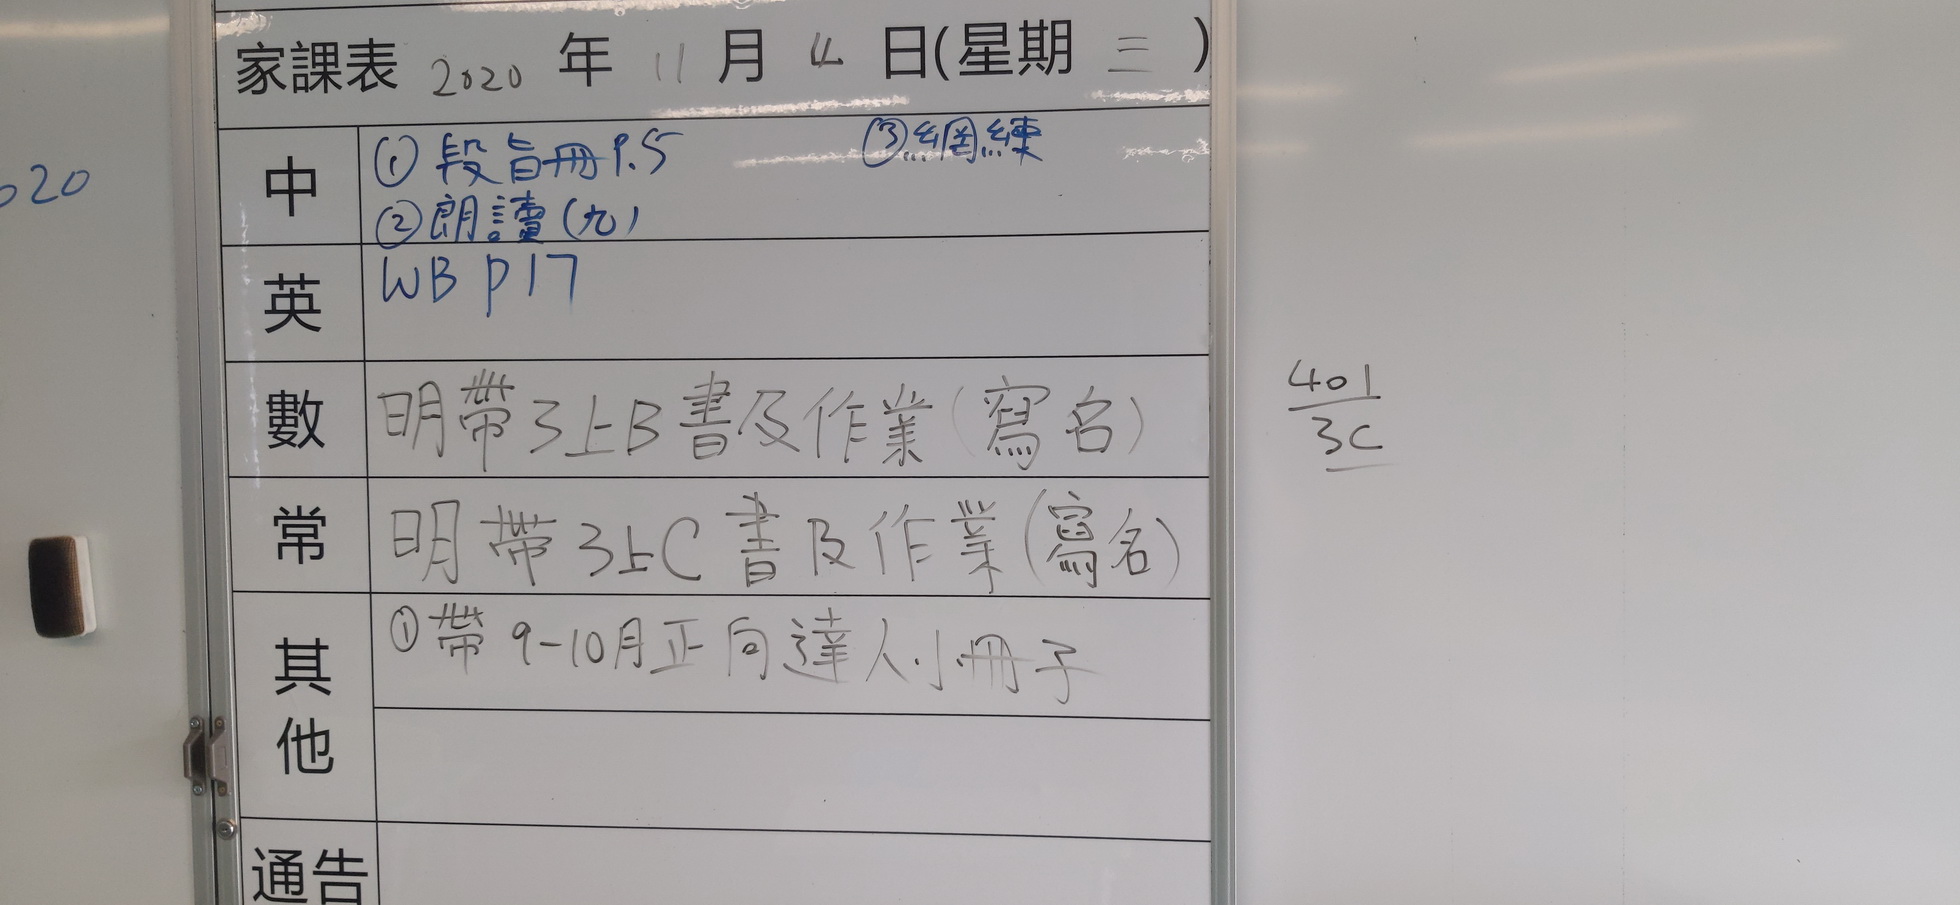 家課表 2020 年 11 月 4 日(星期 三 )
中 ① 段旨冊 P.5 ③網練
② 朗讀(九)
英 WB P17
數 明帶3上B書及作業(寫名)
常 明帶3上C書及作業(寫名)
其他 ①帶9-10月正向達人小冊子
通告
020
401
3C